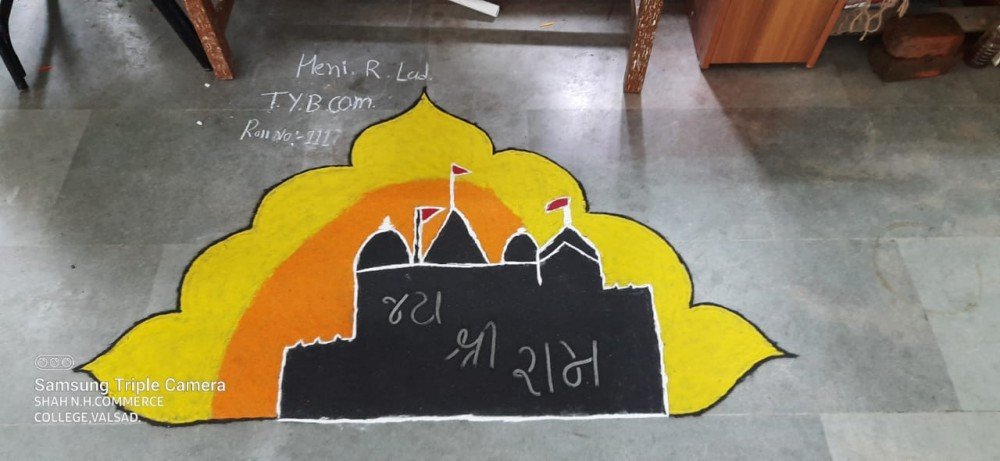 Heni. R. Lad.
T.Y.B.com.
Roll No:-1117
જય
શ્રી
રામ
Samsung Triple Camera
SHAH N.H.COMMERCE
COLLEGE,VALSAD.